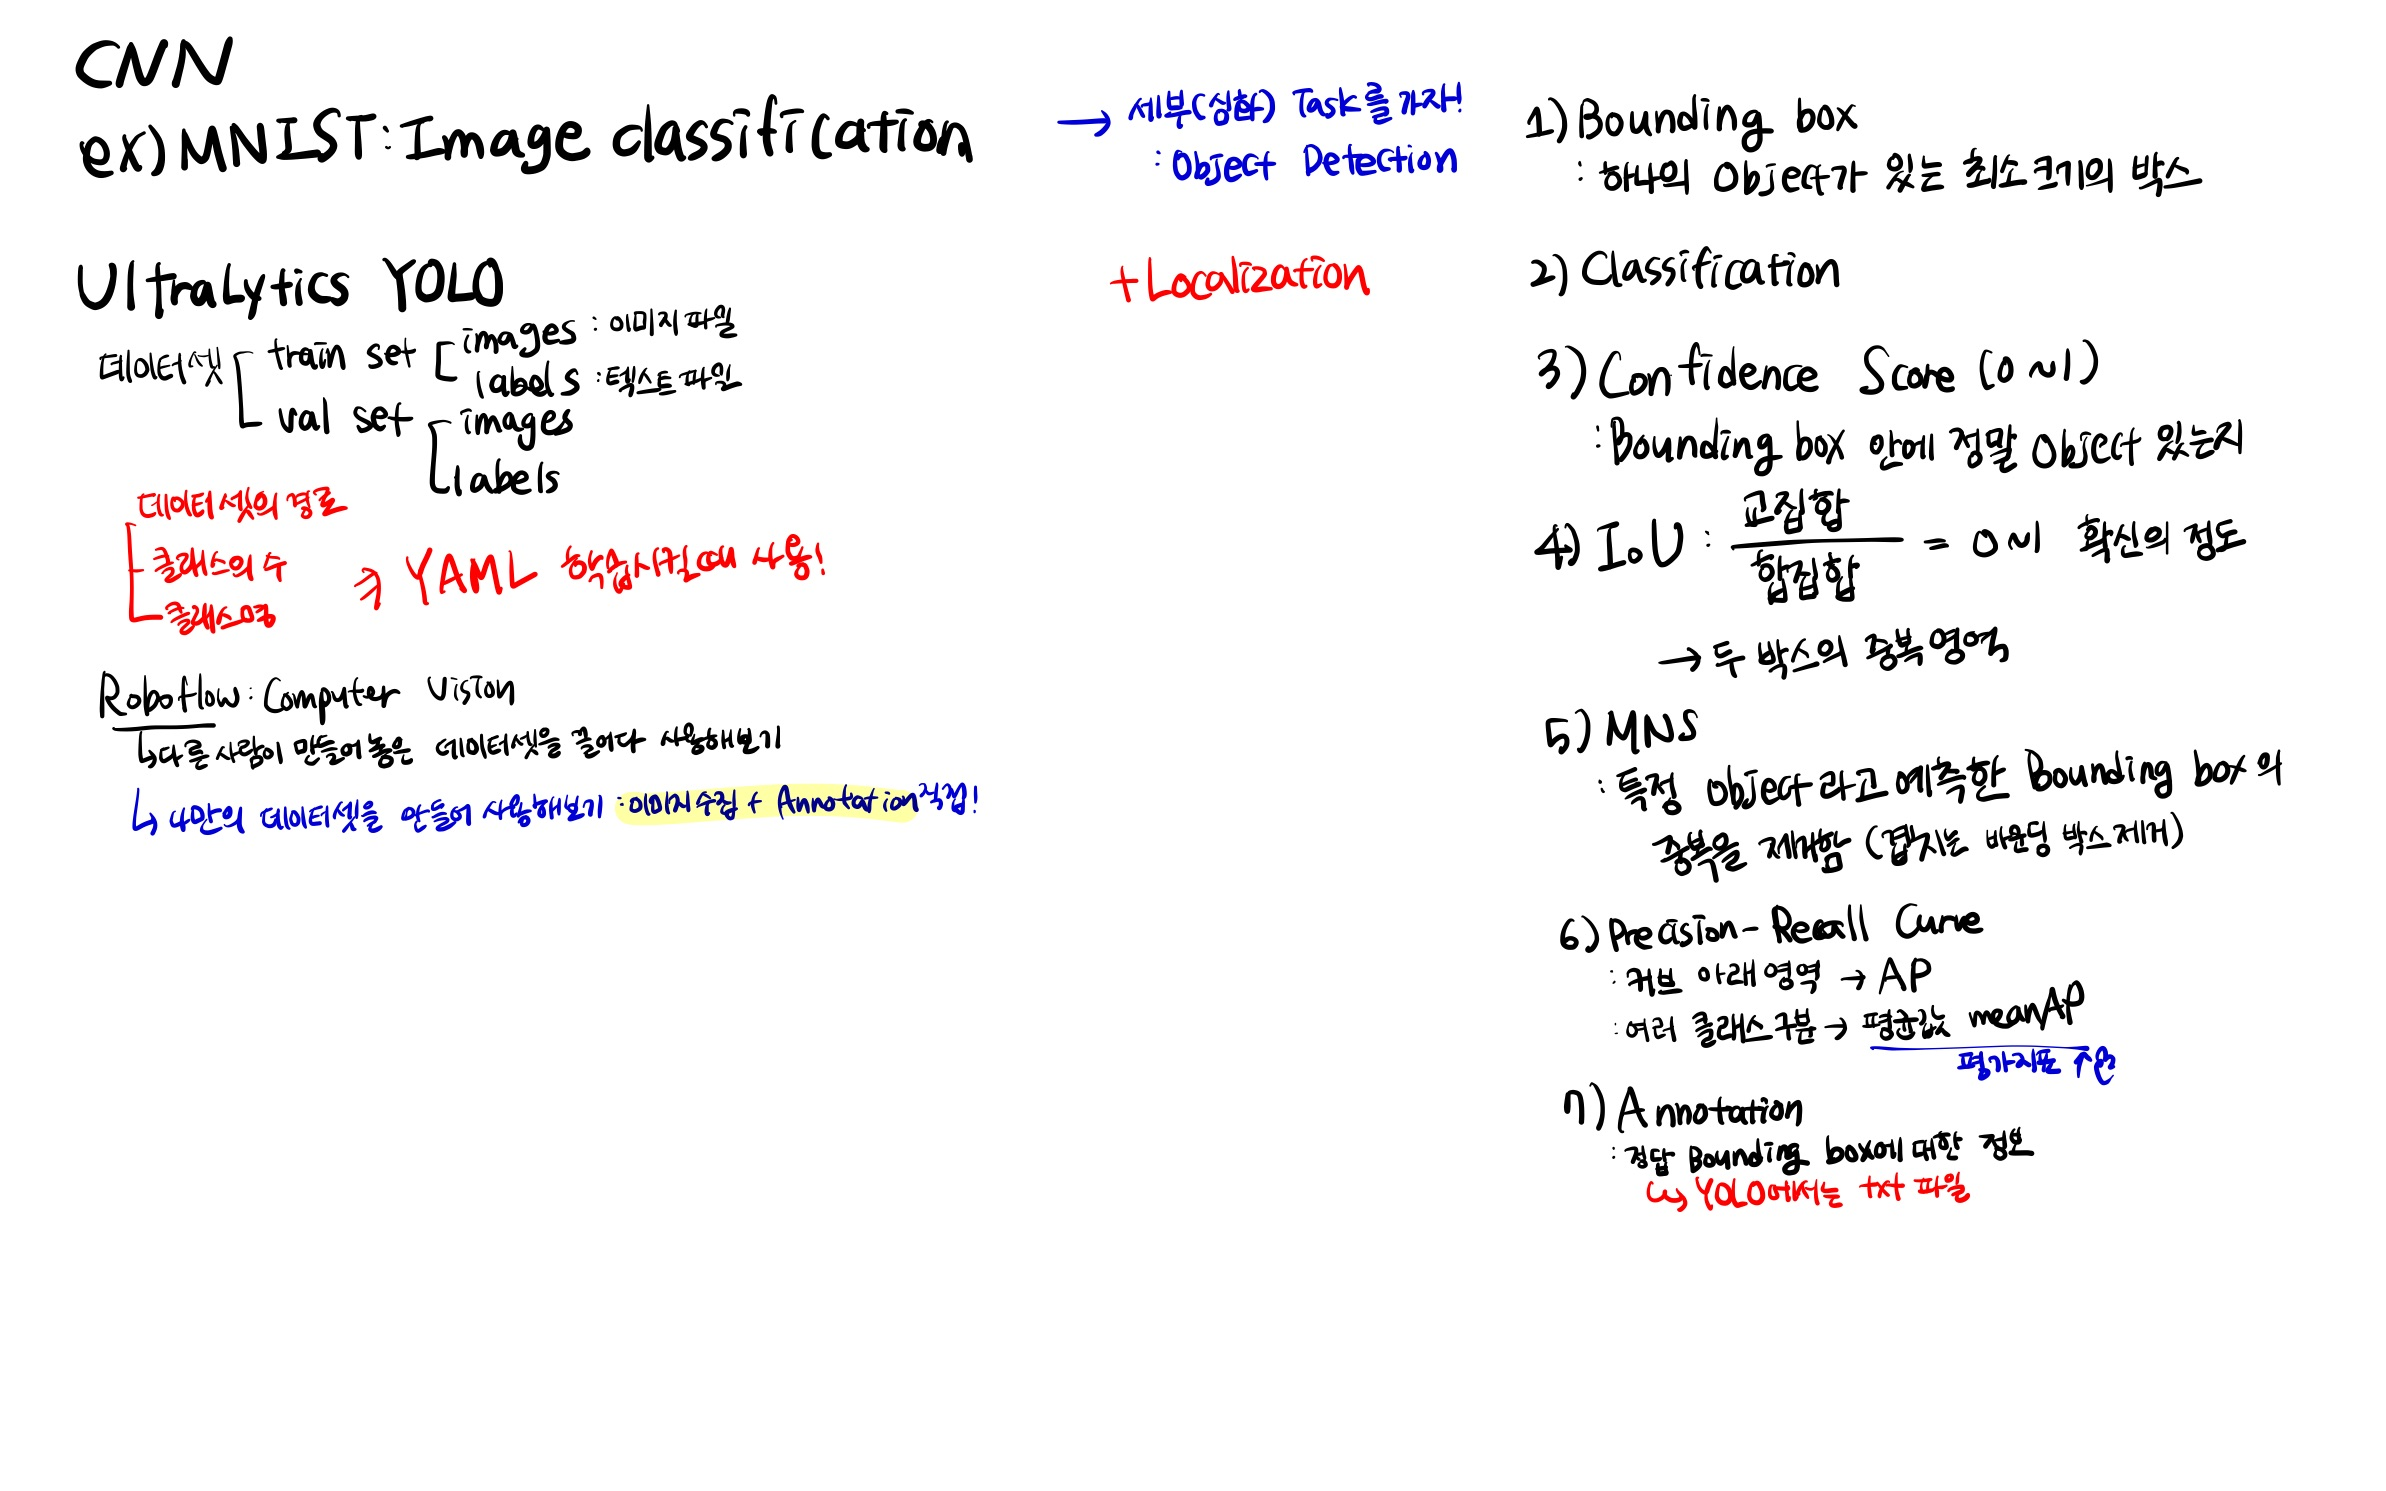 CNN
ex) MNIST : Image classification
→ 세부(심화) Task를 가자!
: Object Detection
+ Localization
Ultralytics YOLO
데이터셋
train set
images : 이미지 파일
labels : 텍스트 파일
val set
images
labels
데이터셋의 경로
클래스의 수
클래스명
⇒ YAML 학습시킬때 사용!
Roboflow : Computer Vision
↳ 다른 사람이 만들어 놓은 데이터셋을 끌어다 사용해보기
↳ 나만의 데이터셋을 만들어 사용해보기 : 이미지 수집 + Annotation 직접!
1) Bounding box
: 하나의 Object가 있는 최소크기의 박스
2) Classification
3) Confidence Score (0~1)
: Bounding box 안에 정말 Object 있는지
4) IoU : 교집합 / 합집합 = 0~1 확신의 정도
→ 두 박스의 중복 영역
5) MNS
: 특정 Object라고 예측한 Bounding box의
중복을 제거함 (겹치는 바운딩 박스 제거)
6) Precision - Recall Curve
: 커브 아래 영역 → AP
: 여러 클래스 구분 → 평균값 meanAP
평가지표 ↑
7) Annotation
: 정답 Bounding box에 대한 정보
↳ YOLO에서는 txt 파일